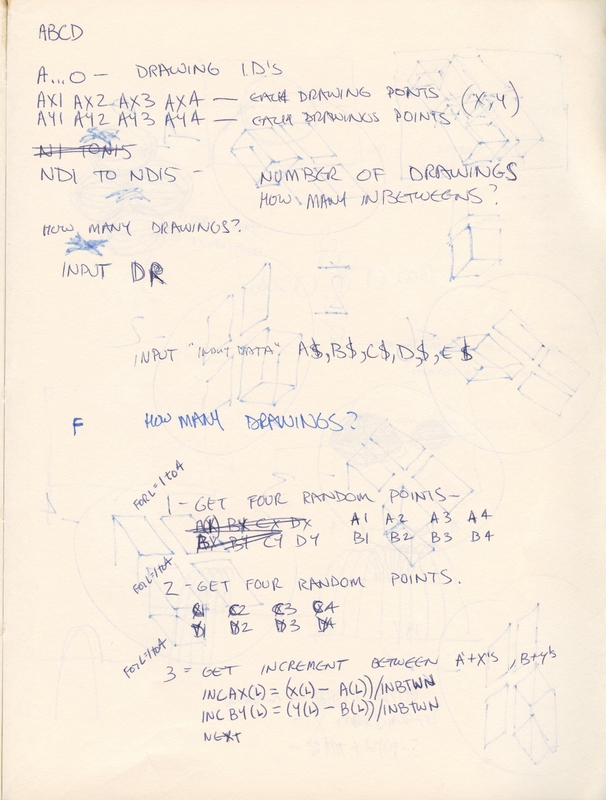 ABCD
A...O - DRAWING I.D'S
AX1 AX2 AX3 AX4 - EACH DRAWING POINTS (X,Y)
AY1 AY2 AY3 AY4 - EACH DRAWINGS POINTS
N1 TO N15
ND1 TO ND15 - NUMBER OF DRAWINGS
HOW MANY INBETWEENS?
HOW MANY DRAWINGS?
INPUT DR
INPUT "INPUT DATA" A$,B$,C$,D$,E$
F HOW MANY DRAWINGS?
FOR L=1 TO 4
1 - GET FOUR RANDOM POINTS -
A(X) BX CX DX A1 A2 A3 A4
BY CY DY B1 B2 B3 B4
FOR L=1 TO 4
2 - GET FOUR RANDOM POINTS.
C2 C3 C4
D2 D3 D4
FOR L=1 TO 4
3 = GET INCREMENT BETWEEN A+X'S, B+Y'S
INCAX(L) = (X(L) - A(L))/INBTWN
INCBY(L) = (Y(L) - B(L))/INBTWN
NEXT